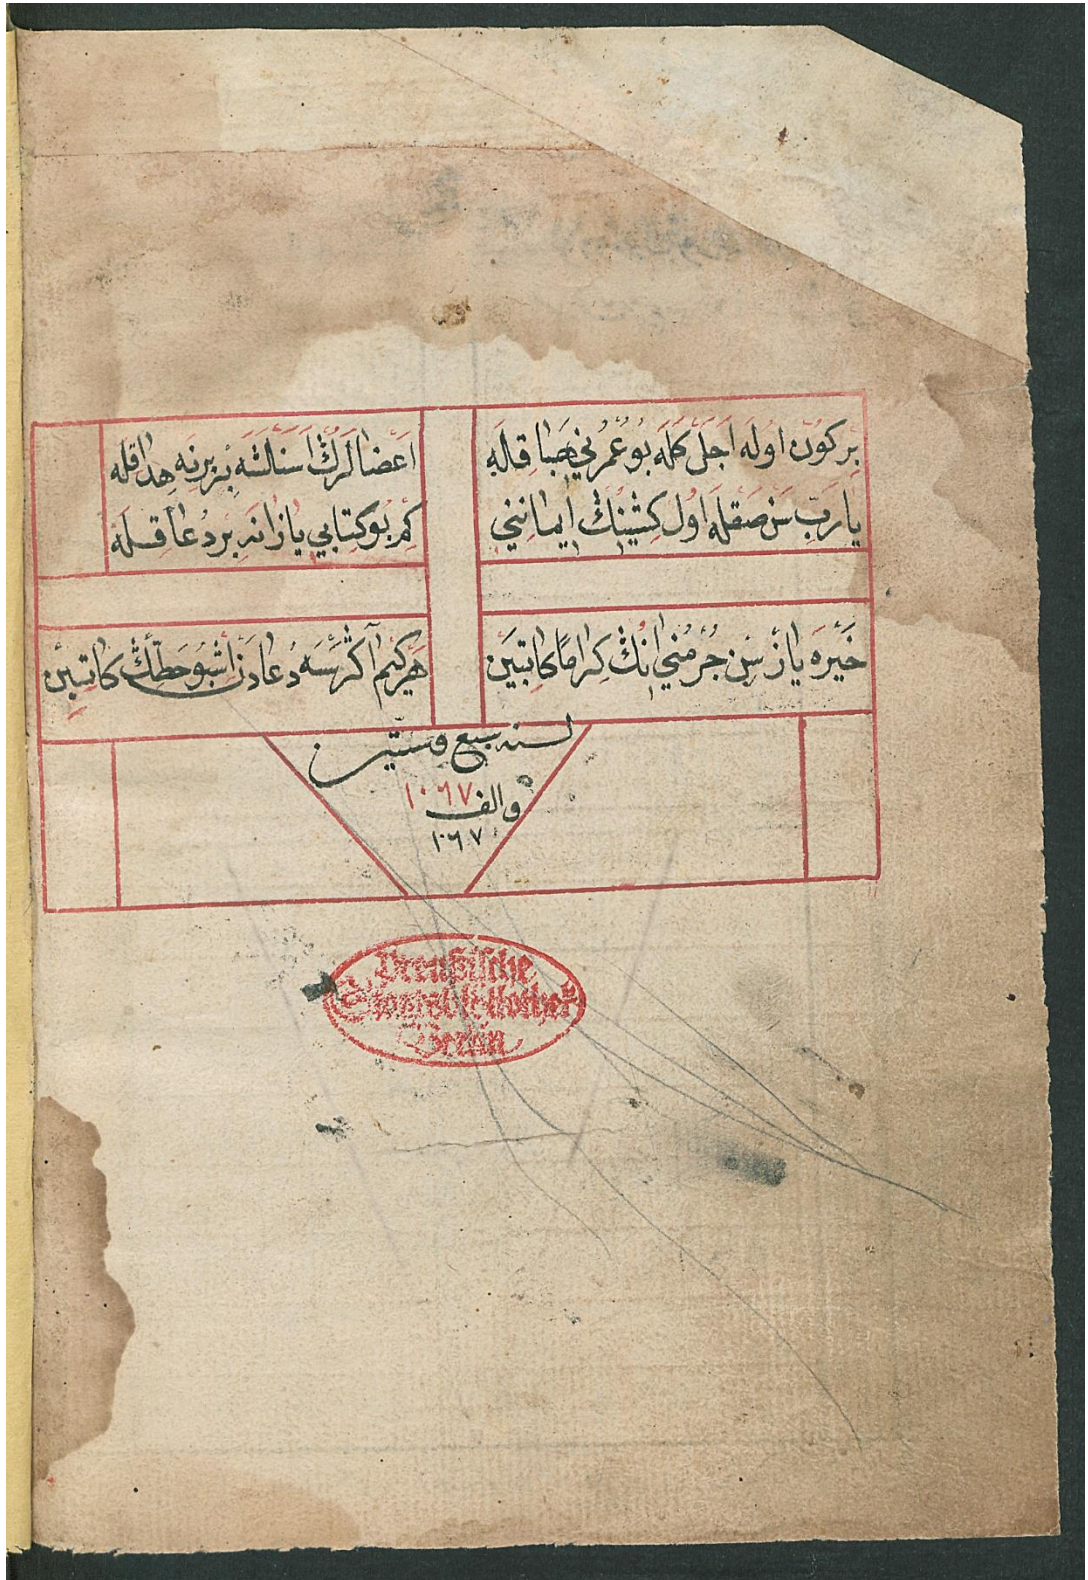 بر كون اوله اجل كله بو عمرني هبا قله
اعضالرك اسنالشه بربرنه هدا قله
يا رب سن صقله اول كشينك ايمانني
كم بو كتابي يازانه بر دعا قله
خيره ياز سن جرمني انك كراما كاتبين
هر كيم آكرسه دعادن اشبو حطك كاتبين
لسنه سبع وستين
والف ١٠٦٧
١٠٦٧
Preußische
Staatsbibliothek
Berlin